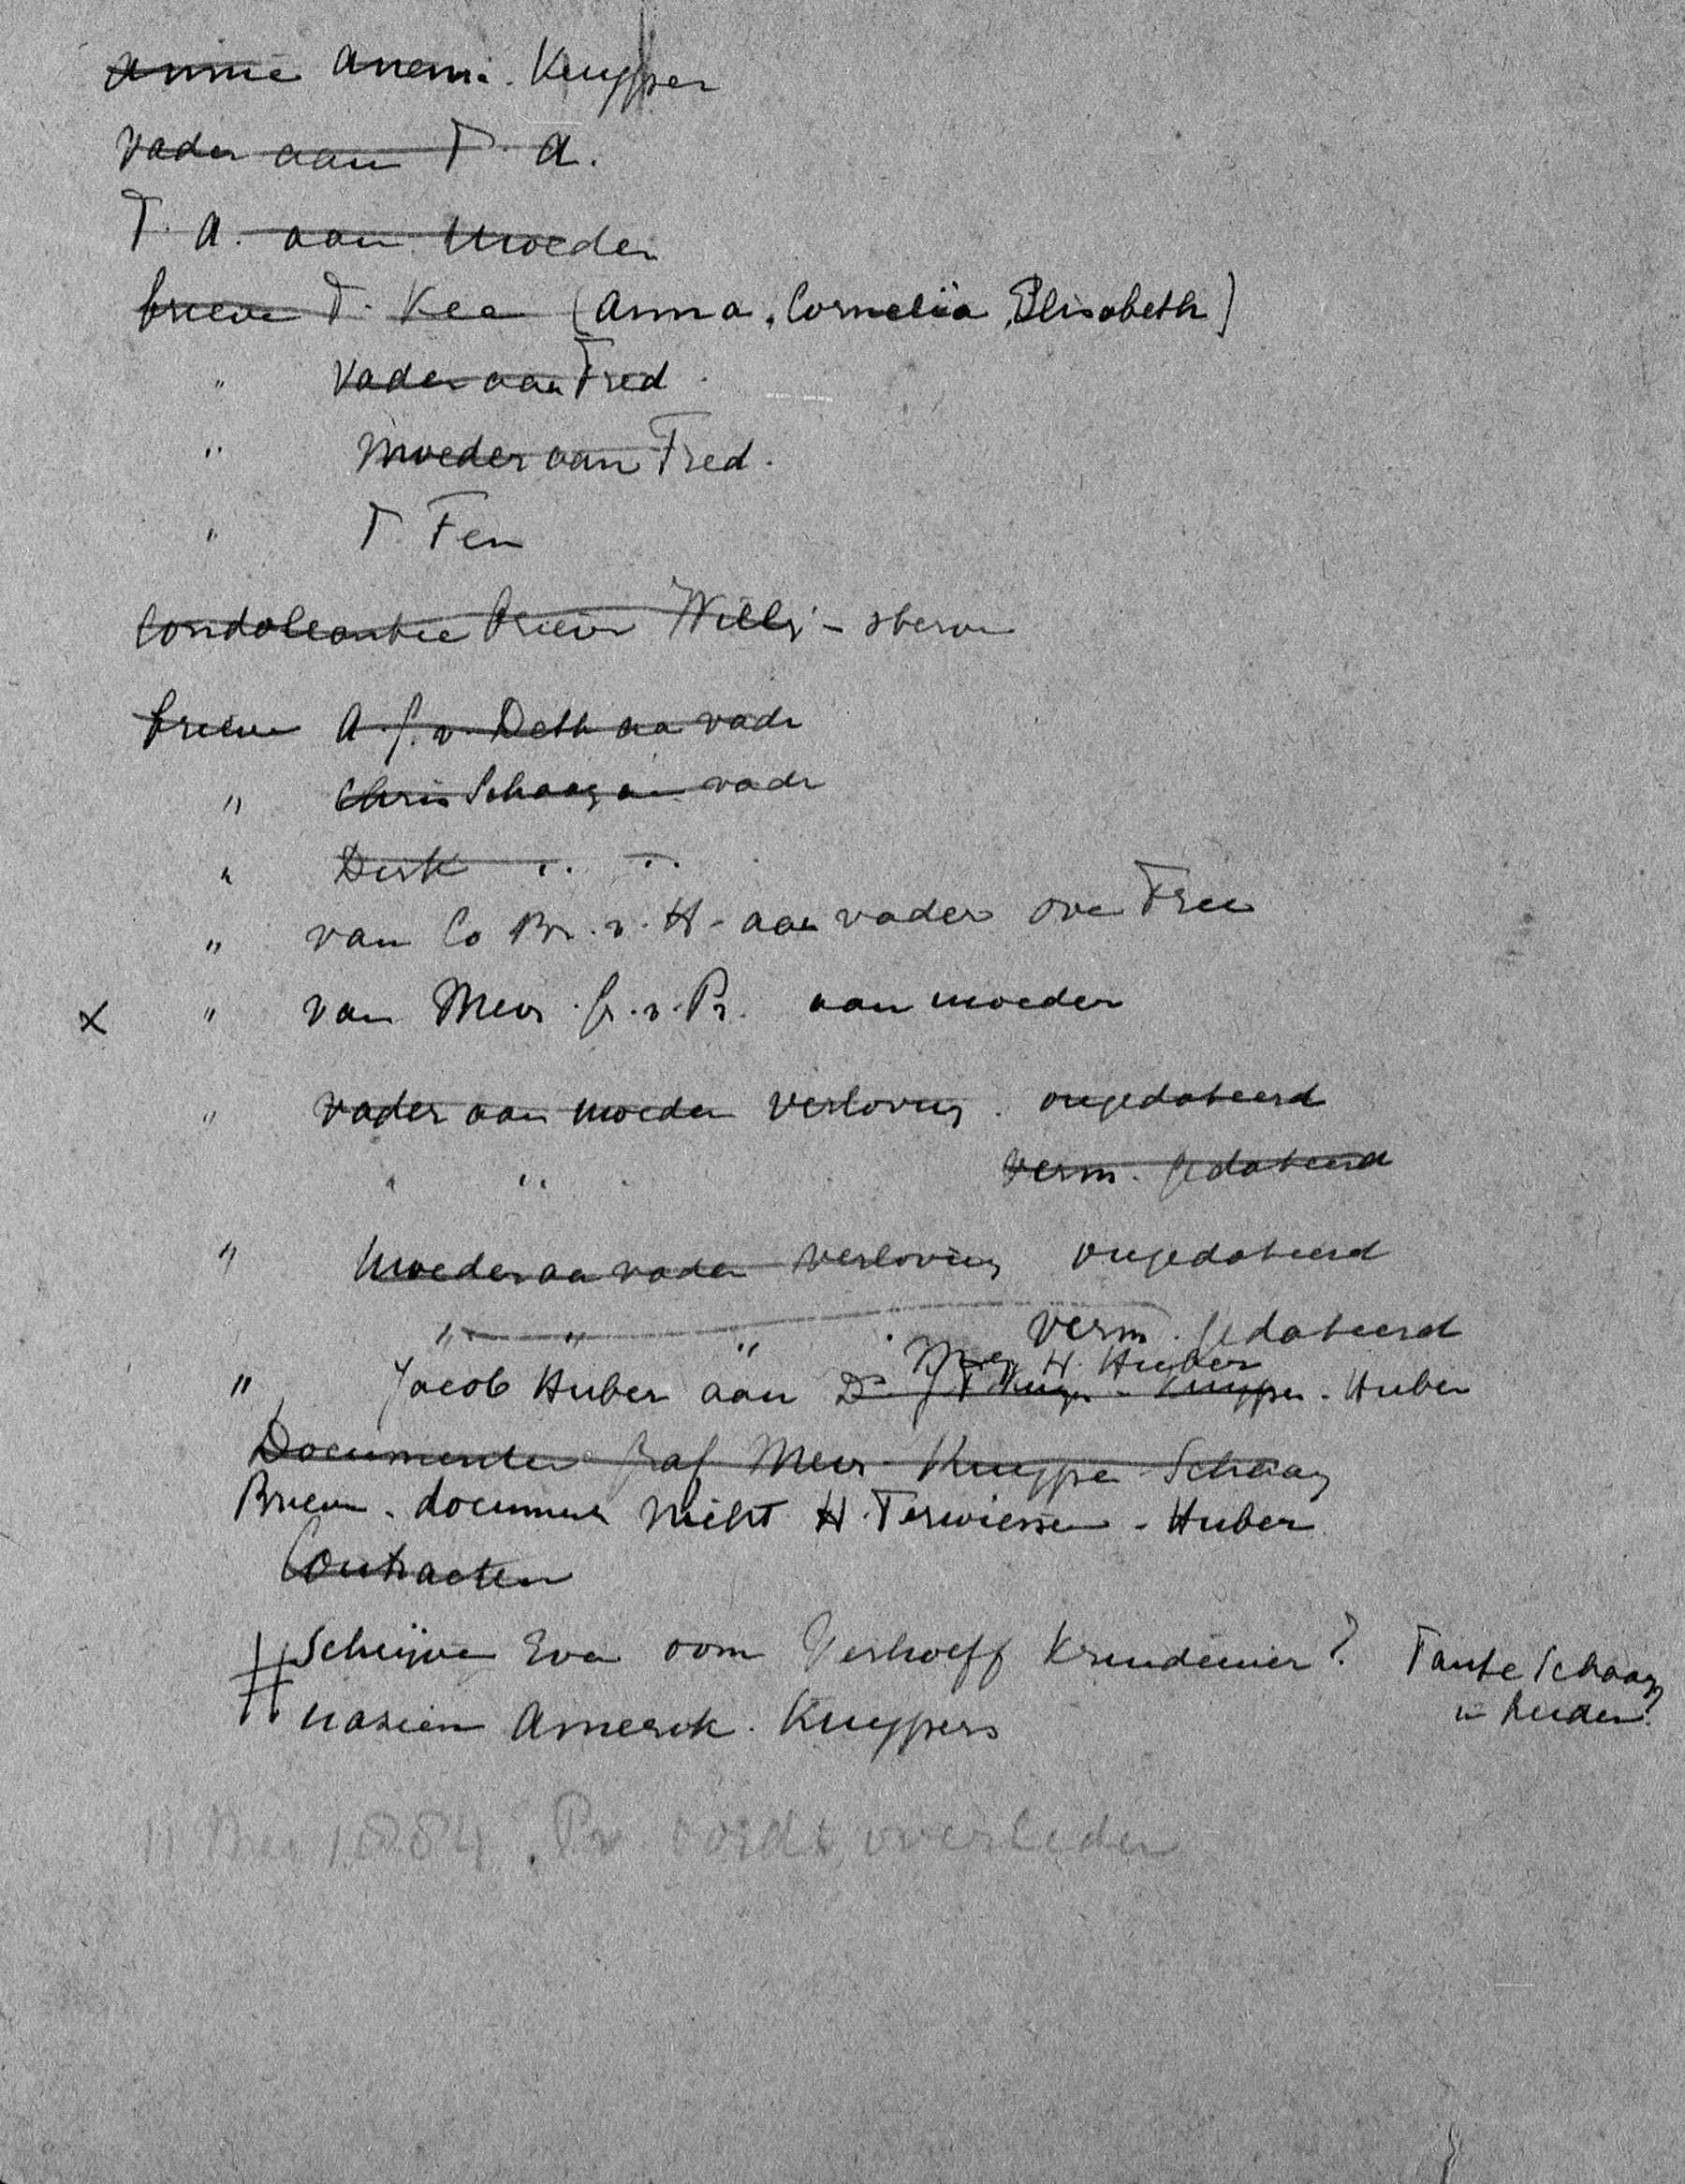 Annie Anemi. Kuyper
Vader aan T. A.
T. A. aan Moeder
brieven T. Kea (Anna, Cornelia, Elisabeth)
" Vader aan Fred
" Moeder aan Fred.
" T. Fen
Condoleantie brieven Willy - sterven
brieven A. J. v. Deth aan vader
" Chris Schaay aan vader
" Dirk " "
" van Co Br. v. H - aan vader over Free
x " van Mevr. Gr. v. Pr. aan moeder
" vader aan moeder verloving ongedateerd
" " verm. gedateerd
" Moeder aan vader verloving ongedateerd
" " " verm. gedateerd
H. Huber
" Jacob Huber aan Dr. Kuyper - Huber
Documenten Graf Mevr. Kuyper Schaay
Brieven. documen Nicht H. Terwiesse - Huber
Contracten
# Schrijven Eva oom Verhoeff Krudenier? Tante Schaay
in Leiden.
nazien Amerik. Kuypers
11 Mei 1884. Pr wordt overleden